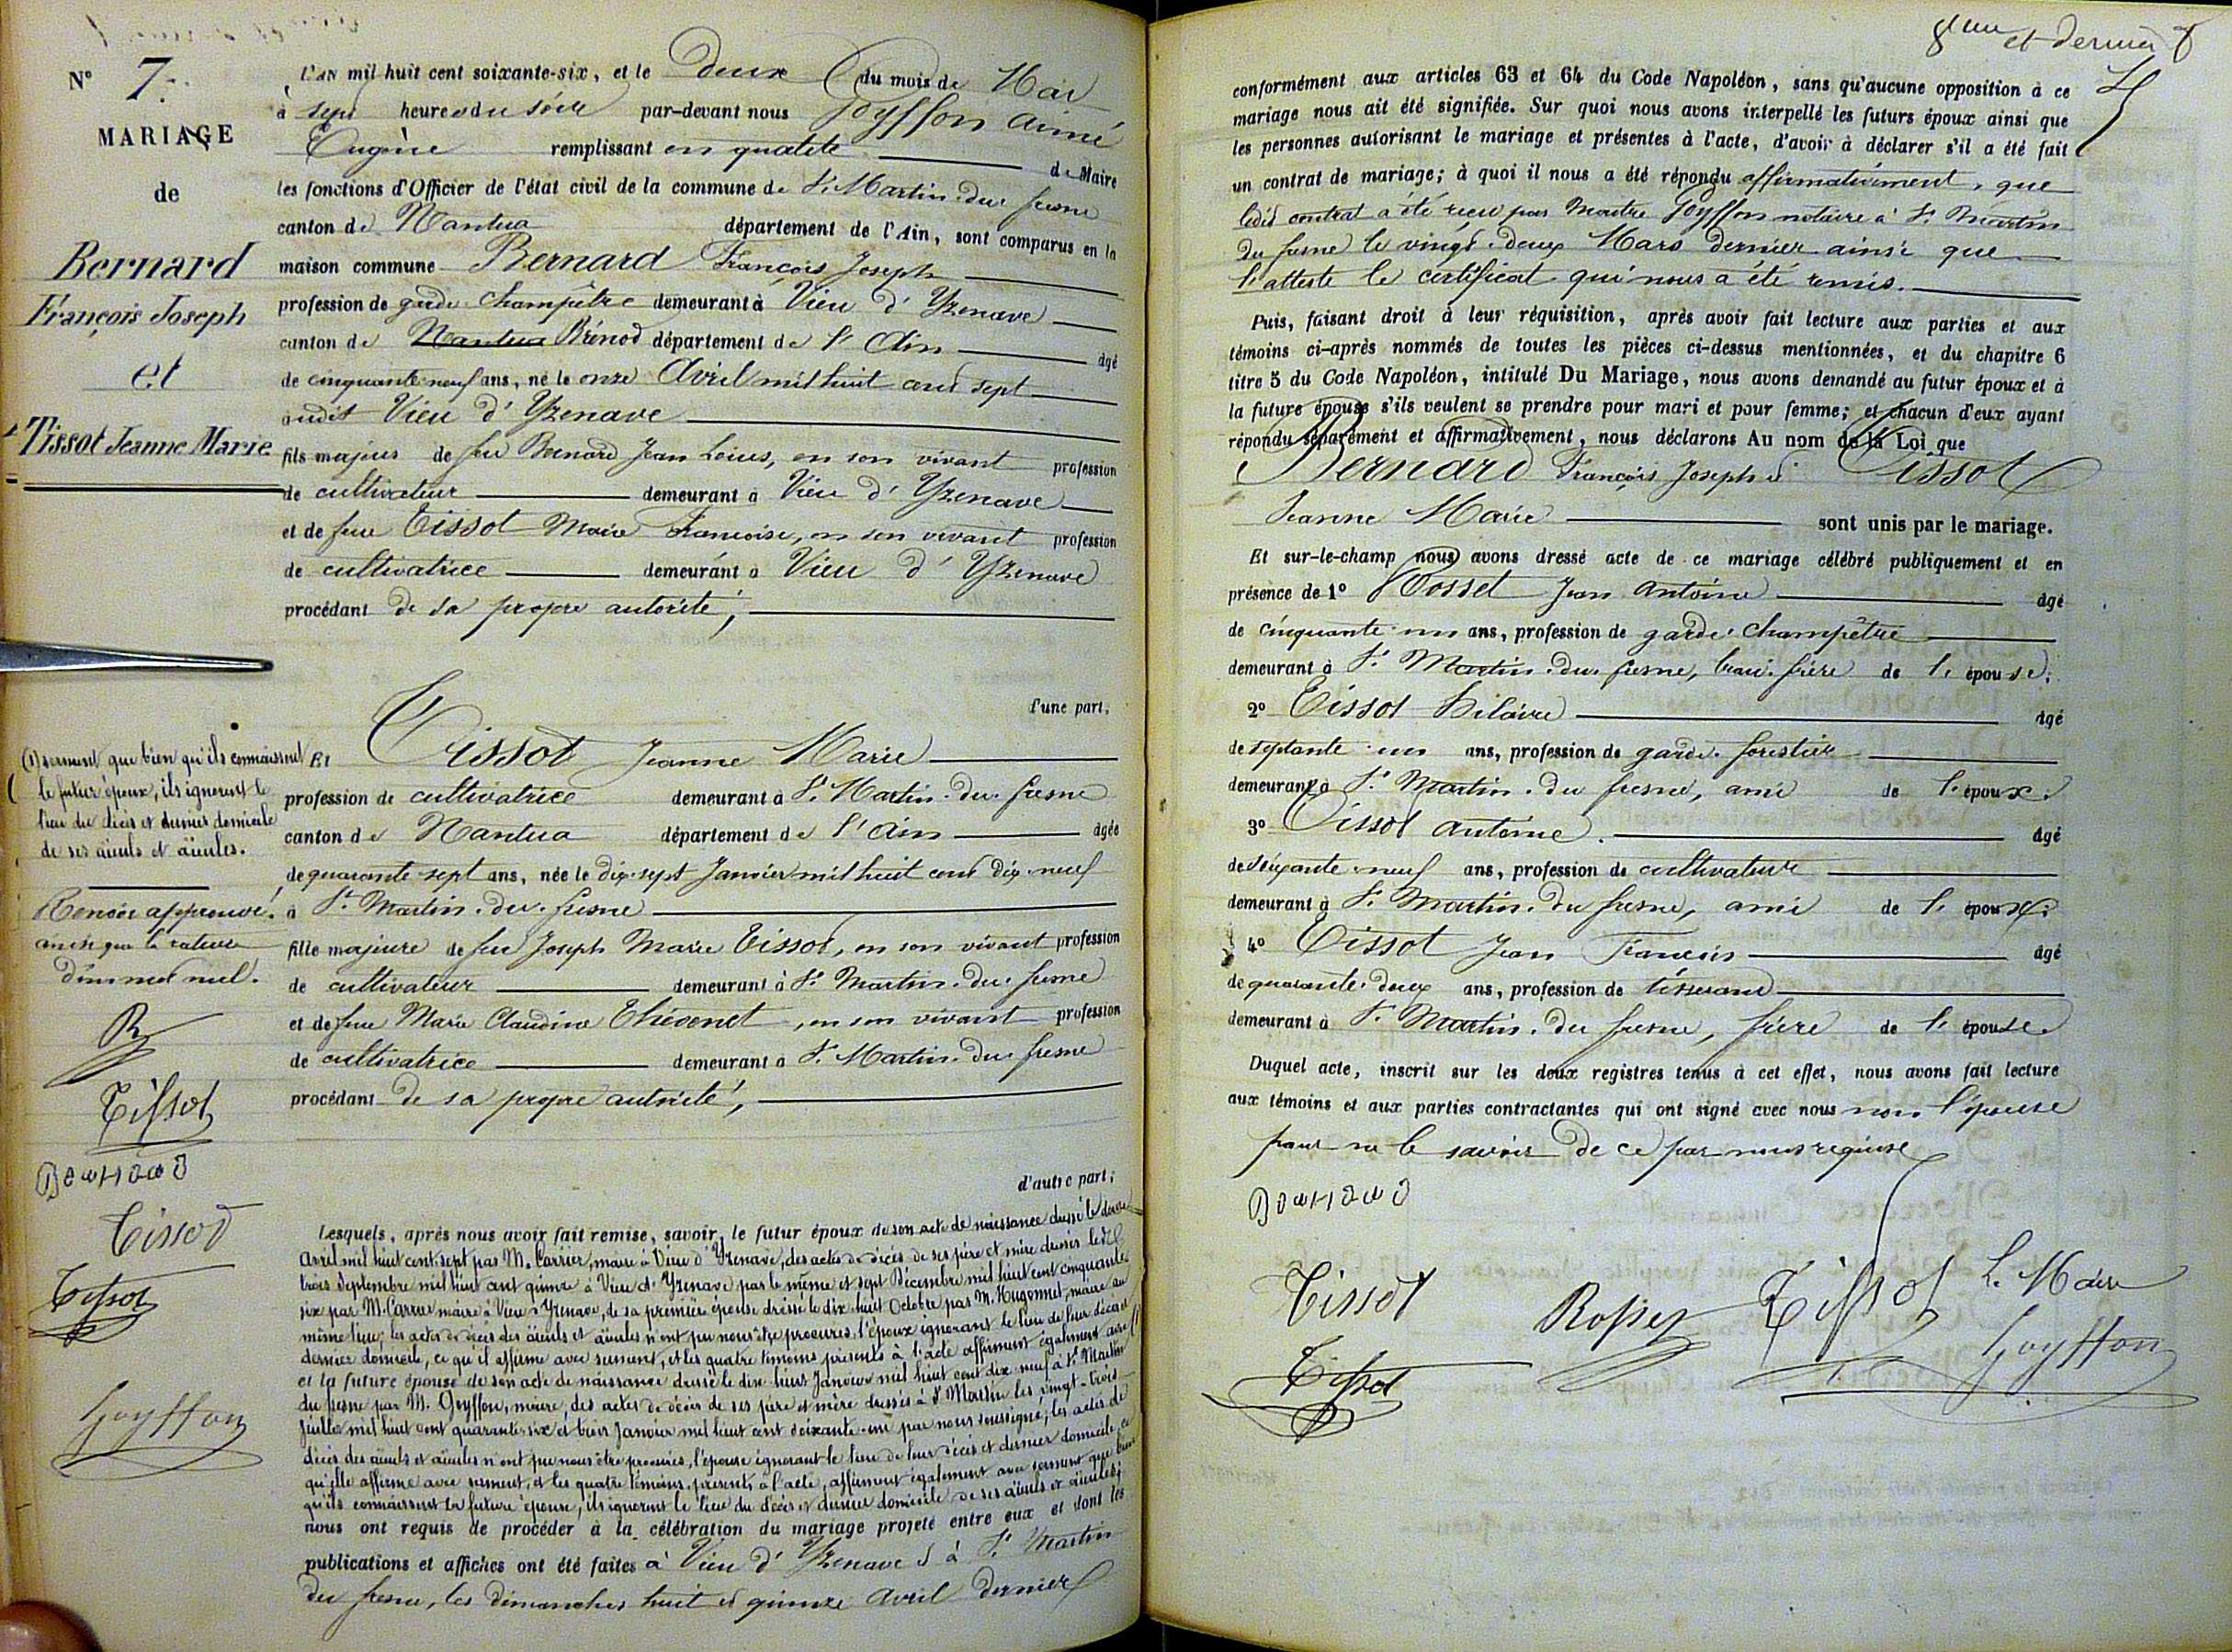 N° 7.
MARIAGE
de
Bernard
François Joseph
et
Tissot Jeanne Marie
L'AN mil huit cent soixante-six, et le deux du mois de Mai
à sept heures du soir par-devant nous Goyffon Aimé
Eugène remplissant en qualité de Maire
les fonctions d'Officier de l'état civil de la commune de St. Martin du fresne
canton de Nantua département de l'Ain, sont comparus en la
maison commune Bernard François Joseph
profession de garde champêtre demeurant à Vieu d'Yzenave
canton de Nantua Brénod département de l'Ain âgé
de cinquante neuf ans, né le onze Avril mil huit cent sept
audit Vieu d'Yzenave
fils majeur de feu Bernard Jean Louis, en son vivant profession
de cultivateur demeurant à Vieu d'Yzenave
et de feue Tissot Marie Francoise, en son vivant profession
de cultivatrice demeurant à Vieu d'Yzenave
procédant de sa propre autorité,
d'une part,
Et Tissot Jeanne Marie
profession de cultivatrice demeurant à St. Martin du fresne
canton de Nantua département de l'Ain âgée
de quarante sept ans, née le dix-sept Janvier mil huit cent dix neuf
à St. Martin du fresne
fille majeure de feu Joseph Marie Tissot, en son vivant profession
de cultivateur demeurant à St. Martin du fresne
et de feue Marie Claudine Thévenet, en son vivant profession
de cultivatrice demeurant à St. Martin du fresne
procédant de sa propre autorité,
d'autre part;
Lesquels, après nous avoir fait remise, savoir, le futur époux de son acte de naissance dressé le douze
Avril mil huit cent sept par M. Carrier, maire à Vieu d'Yzenave, des actes de décès de ses père et mère dressés les
trois Septembre mil huit cent quinze à Vieu d'Yzenave par le même et sept Décembre mil huit cent cinquante
six par M. Carrier maire à Vieu d'Yzenave, de sa première épouse dressé le dix huit Octobre par M. Hugonnet, maire au
même lieu; les actes de décès des aïeuls et aïeules n'ont pu nous être procurés, l'époux ignorant le lieu de leur décès et
dernier domicile, ce qu'il affirme avec serment, et les quatre témoins présents à l'acte affirment également avec (1)
et la future épouse de son acte de naissance dressé le dix huit Janvier mil huit cent dix neuf à St. Martin
du fresne par M. Goyffon, maire, des actes de décès de ses père et mère dressés à St. Martin les vingt-trois
juillet mil huit cent quarante-six et trois Janvier mil huit cent soixante-un par nous soussigné; les actes de
décès des aïeuls et aïeules n'ont pu nous être procurés, l'épouse ignorant le lieu de leur décès et dernier domicile, ce
qu'elle affirme avec serment, et les quatre témoins, présents à l'acte, affirment également avec serment que bien
qu'ils connaissent la future épouse, ils ignorent le lieu du décès et dernier domicile de ses aïeuls et aïeules;
nous ont requis de procéder à la célébration du mariage projeté entre eux et dont les
publications et affiches ont été faites à Vieu d'Yzenave et à St. Martin
du fresne, les dimanches huit et quinze Avril dernier
(1) serment que bien qu'ils connaissent
le futur époux, ils ignorent le
lieu du décès et dernier domicile
de ses aïeuls et aïeules.
Renvoi approuvé,
ainsi que la rature
d'un mot nul.
R
Tissot
Bernard
Tissot
Tissot
Goyffon
8eme et dernier
conformément aux articles 63 et 64 du Code Napoléon, sans qu'aucune opposition à ce
mariage nous ait été signifiée. Sur quoi nous avons interpellé les futurs époux ainsi que
les personnes autorisant le mariage et présentes à l'acte, d'avoir à déclarer s'il a été fait
un contrat de mariage; à quoi il nous a été répondu affirmativement, que
ledit contrat a été reçu par Maître Goyffon notaire à St. Martin
du fresne le vingt-deux Mars dernier ainsi que
l'atteste le certificat qui nous a été remis.
Puis, faisant droit à leur réquisition, après avoir fait lecture aux parties et aux
témoins ci-après nommés de toutes les pièces ci-dessus mentionnées, et du chapitre 6
titre 5 du Code Napoléon, intitulé Du Mariage, nous avons demandé au futur époux et à
la future épouse s'ils veulent se prendre pour mari et pour femme; et chacun d'eux ayant
répondu séparément et affirmativement, nous déclarons Au nom de la Loi que
Bernard François Joseph et Tissot
Jeanne Marie sont unis par le mariage.
Et sur-le-champ nous avons dressé acte de ce mariage célébré publiquement et en
présence de 1° Rosset Jean Antoine âgé
de cinquante un ans, profession de garde champêtre
demeurant à St. Martin du fresne, beau-frère de l'épouse;
2° Tissot Hilaire âgé
de septante un ans, profession de garde forestier
demeurant à St. Martin du fresne, ami de l'époux;
3° Tissot Antoine âgé
de soixante neuf ans, profession de cultivateur
demeurant à St. Martin du fresne, ami de l'époux;
4° Tissot Jean François âgé
de quarante-deux ans, profession de tisserand
demeurant à St. Martin du fresne, frère de l'épouse
Duquel acte, inscrit sur les deux registres tenus à cet effet, nous avons fait lecture
aux témoins et aux parties contractantes qui ont signé avec nous non l'épouse
pour ne le savoir de ce par nous requise
Bernard
Tissot Rosset Tissot Le Maire
Tissot Goyffon